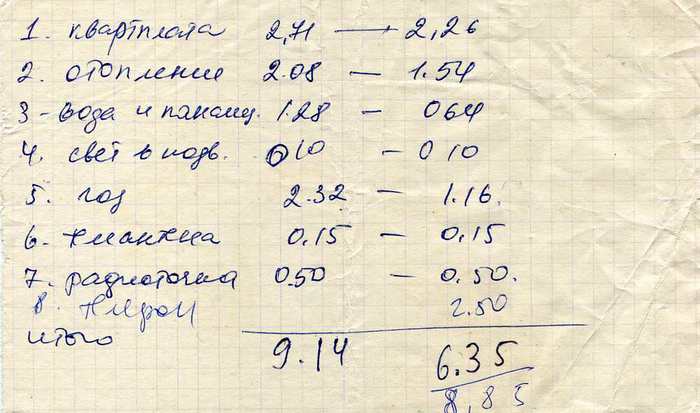 1. квартплата 2,71 — 2,26
2. отопление 2.08 — 1.54
3 - вода и канализ. 1.28 - 064
4. свет в подв. 010 - 010
5. газ 2.32 - 1.16.
6. 0.15 - 0,15
7. радиоточка 0.50 - 0,50.
8. 2.50
итого 9.14 6.35
8,85